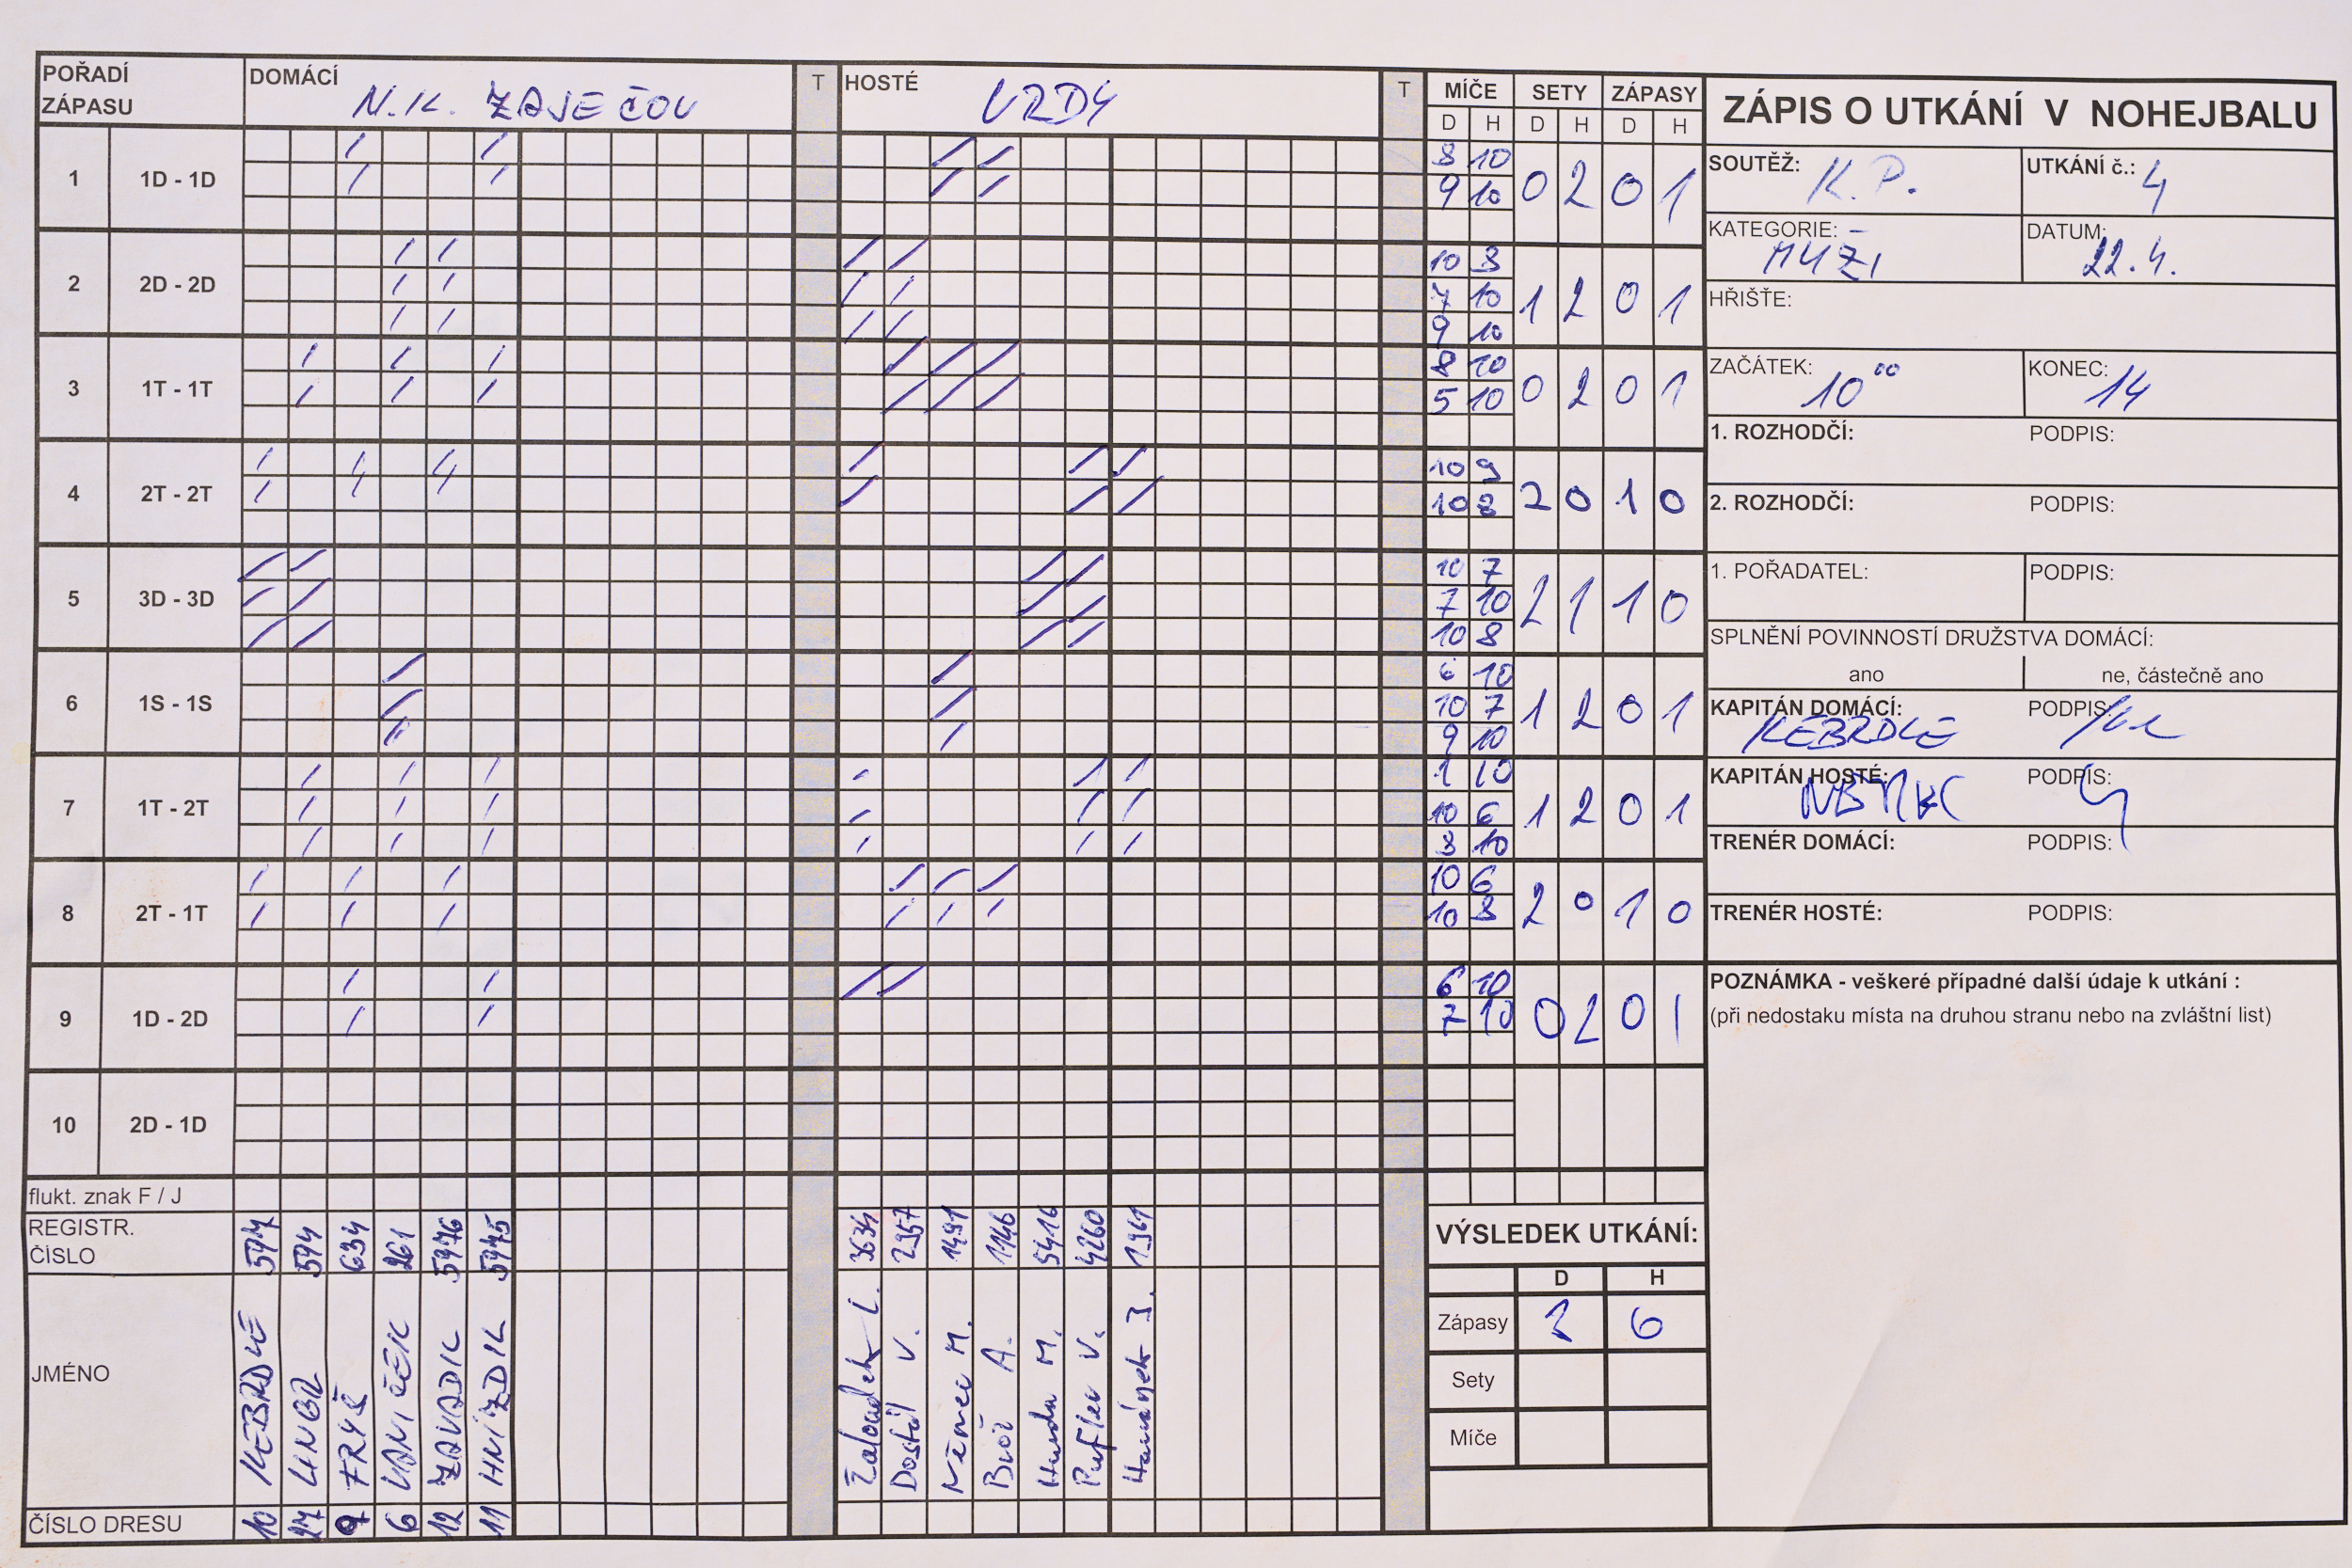 POŘADÍ ZÁPASU DOMÁCÍ N.K. ZAJEČOV T HOSTÉ VRDY T MÍČE SETY ZÁPASY
D H D H D H
1 1D - 1D 8 10 0 2 0 1
9 10
2 2D - 2D 10 8 1 2 0 1
7 10
9 10
3 1T - 1T 8 10 0 2 0 1
5 10
4 2T - 2T 10 9 2 0 1 0
10 8
5 3D - 3D 10 7 2 1 1 0
7 10
10 8
6 1S - 1S 6 10 1 2 0 1
10 7
9 10
7 1T - 2T 1 10 1 2 0 1
10 6
8 10
8 2T - 1T 10 6 2 0 1 0
10 8
9 1D - 2D 6 10 0 2 0 1
7 10
10 2D - 1D
flukt. znak F / J
REGISTR. ČÍSLO 594 634 261 5976 5975 3634 2957 1491 1146 5416 4260 1961
JMÉNO KEBRDLE UNGR FRYŠ VANÍČEK ZAVADIL HNÍZDIL Žaloudek L. Dostál V. Němec M. Burt A. M. V. Hamánek J.
ČÍSLO DRESU 10 27 9 6 12 11
VÝSLEDEK UTKÁNÍ:
D H
Zápasy 3 6
Sety
Míče
ZÁPIS O UTKÁNÍ V NOHEJBALU
SOUTĚŽ: K.P. UTKÁNÍ č.: 4
KATEGORIE: MUŽI DATUM: 22.4.
HŘIŠTE:
ZAČÁTEK: 10 00 KONEC: 14
1. ROZHODČÍ: PODPIS:
2. ROZHODČÍ: PODPIS:
1. POŘADATEL: PODPIS:
SPLNĚNÍ POVINNOSTÍ DRUŽSTVA DOMÁCÍ:
ano ne, částečně ano
KAPITÁN DOMÁCÍ: KEBRDLE PODPIS:
KAPITÁN HOSTÉ: PODPIS:
TRENÉR DOMÁCÍ: PODPIS:
TRENÉR HOSTÉ: PODPIS:
POZNÁMKA - veškeré případné další údaje k utkání :
(při nedostaku místa na druhou stranu nebo na zvláštní list)